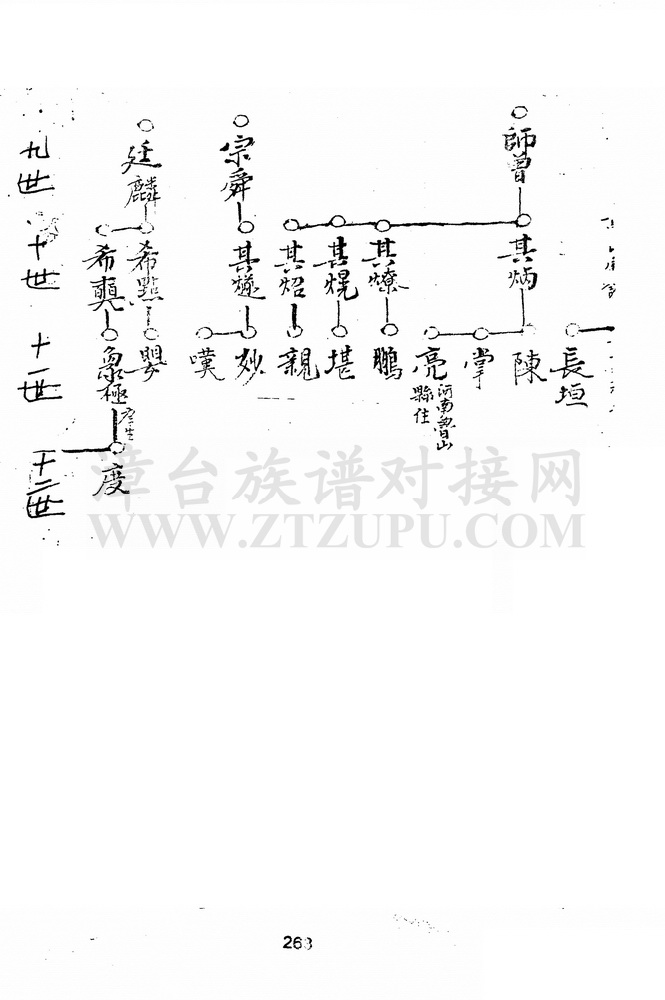 九世
十世
十一世
十二世
師曾
其炳
陳
掌
亮
河南魯山
縣住
長垣
其燎
鵬
其焜
堪
其炤
親
宗舜
其燧
妙
嘆
廷麟
希點
嬰
希奭
象極
庠生
度
漳台族谱对接网
WWW.ZTZUPU.COM
268